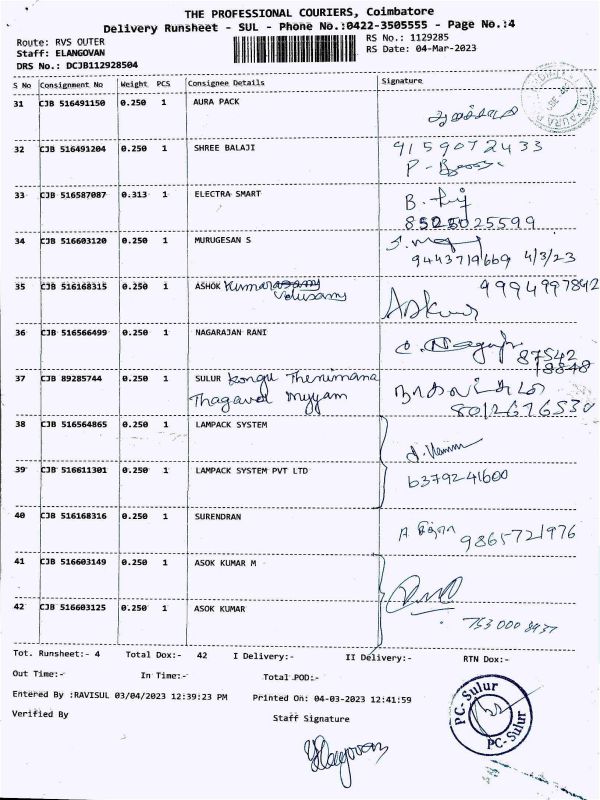 THE PROFESSIONAL COURIERS, Coimbatore
Delivery Runsheet - SUL - Phone No.:0422-3505555 - Page No.:4
Route: RVS OUTER RS No.: 1129285
Staff: ELANGOVAN RS Date: 04-Mar-2023
DRS No.: DCJB112928504
S No Consignment No Weight PCS Consignee Details Signature
31 CJB 516491150 0.250 1 AURA PACK
32 CJB 516491204 0.250 1 SHREE BALAJI 9159072433
33 CJB 516587087 0.313 1 ELECTRA SMART B.
8525025599
34 CJB 516603120 0.250 1 MURUGESAN S
9443719669 4/3/23
35 CJB 516168315 0.250 1 ASHOK Kumarasamy 9994997892
Velusamy
36 CJB 516566499 0.250 1 NAGARAJAN RANI 87542
18848
37 CJB 89285744 0.250 1 SULUR Kongu Thenimana
Thagaval Miyyam 8012676530
38 CJB 516564865 0.250 1 LAMPACK SYSTEM
39 CJB 516611301 0.250 1 LAMPACK SYSTEM PVT LTD 6379241600
40 CJB 516168316 0.250 1 SURENDRAN 9865721976
41 CJB 516603149 0.250 1 ASOK KUMAR M
42 CJB 516603125 0.250 1 ASOK KUMAR
Tot. Runsheet:- 4 Total Dox:- 42 I Delivery:- II Delivery:- RTN Dox:-
Out Time:- In Time:- Total POD:-
Entered By :RAVISUL 03/04/2023 12:39:23 PM Printed On: 04-03-2023 12:41:59
Verified By Staff Signature
PC-Sulur
PC-Sulur
Elangovan